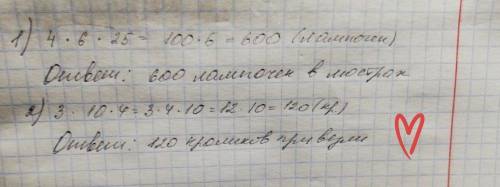 1) 4 · 6 · 25 = 100 · 6 = 600 (лампочек)
Ответ: 600 лампочек в люстрах
2) 3 · 10 · 4 = 3 · 4 · 10 = 12 · 10 = 120 (кр)
Ответ: 120 кроликов привезли